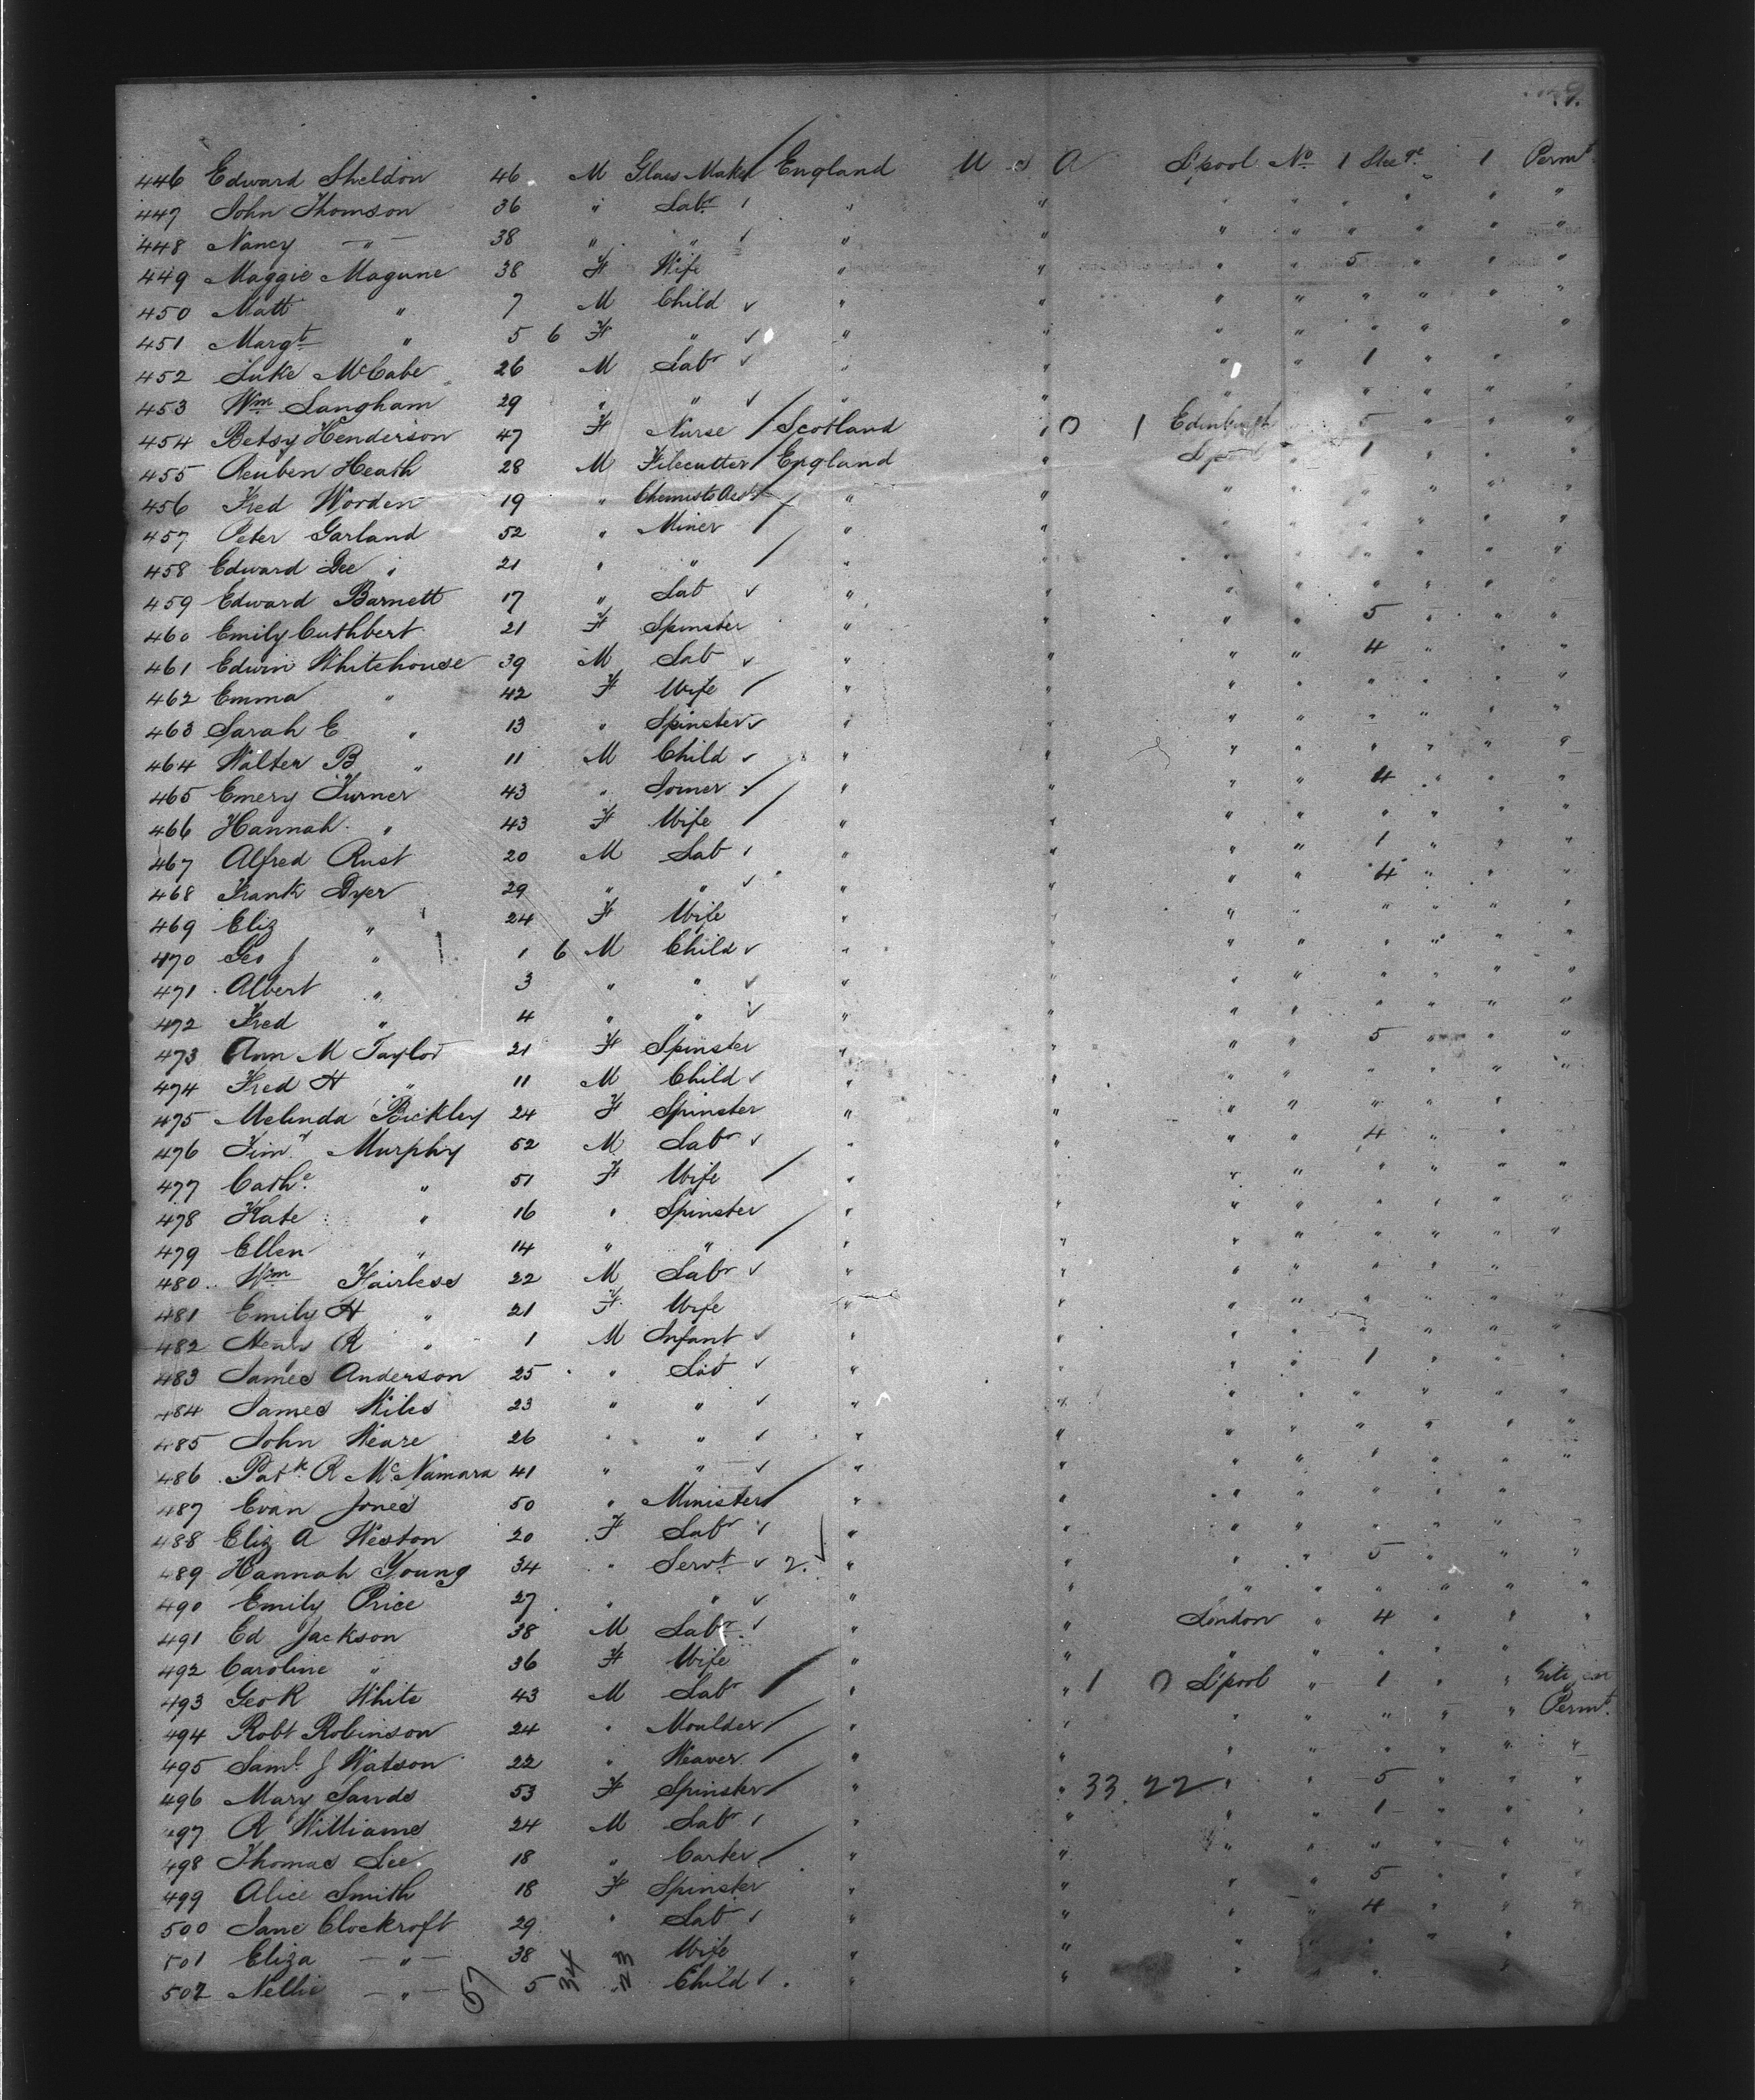 9.
446 Edward Sheldon 46 M Glass Maker England U S A L'pool No 1 Stee ge 1 Permt
447 John Thomson 36 " Labr " " " " " " " "
448 Nancy — " — 38 " " " " " " " " " "
449 Maggie Magune 38 F Wife " " " " 5 " " "
450 Matt " 7 M Child " " " " " " " "
451 Margt " 5 6 F " " " " " " " "
452 Luke McCabe 26 M Labr " " " " 1 " "
453 Wm Langham 29 " " " " " " " " "
454 Betsy Henderson 47 F Nurse Scotland " 0 1 Edinburgh " 5 " " "
455 Reuben Heath 28 M Filecutter England " L'pool " 1 " " "
456 Fred Worden 19 " Chemists Asst " " " " " " " "
457 Peter Garland 52 " Miner " " " " " " "
458 Edward Dee 21 " " " " " " " " "
459 Edward Barnett 17 " Lab " " " " " " "
460 Emily Cuthbert 21 F Spinster " " " " 5 " " "
461 Edwin Whitehouse 39 M Lab " " " " 4 " " "
462 Emma " 42 F Wife " " " " " " " "
463 Sarah E " 13 " Spinster " " " " " " " "
464 Walter B " 11 M Child " " " " " " " "
465 Emery Turner 43 " Joiner " " " " 4 " " "
466 Hannah " 43 F Wife " " " " " " " "
467 Alfred Rust 20 M Lab " " " " 1 " " "
468 Frank Dyer 29 " " " " " " 4 " " "
469 Eliz " 24 F Wife " " " " " " " "
470 Geo J " 1 6 M Child " " " " " " " "
471 Albert " 3 " " " " " " " " " "
472 Fred " 4 " " " " " " " " " "
473 Ann M Taylor 21 F Spinster " " " " 5 " " "
474 Fred H " 11 M Child " " " " " " " "
475 Melinda Bickley 24 F Spinster " " " " " " " "
476 Timy Murphy 52 M Labr " " " " 4 " " "
477 Cathe " 51 F Wife " " " " " " " "
478 Kate " 16 " Spinster " " " " " " " "
479 Ellen " 14 " " " " " " " " " "
480 Wm Fairless 22 M Labr " " " " " " "
481 Emily H " 21 F Wife " " " " " " " "
482 R " 1 M Infant " " " " " " " "
483 James Anderson 25 " Lab " " " " 1 " "
484 James Miles 23 " " " " " " " " " "
485 John Weare 26 " " " " " " " " " "
486 Patk R McNamara 41 " " " " " " 1 " " "
487 Evan Jones 50 " Minister " " " " " " "
488 Eliz A Weston 20 F Labr " " " " " " " "
489 Hannah Young 34 " Servt 2. " " " " 5 " " "
490 Emily Price 27 " " " " " " " " " "
491 Ed Jackson 38 M Labr " " London " 4 " " "
492 Caroline " 36 F Wife " " " " " " "
493 Geo R White 43 M Labr " " 1 0 L'pool " 1 " "
494 Robt Robinson 24 " Moulder " " " " " " " Permt.
495 Saml J Watson 22 " Weaver " " " " " " " "
496 Mary Sands 53 F Spinster " " 33.22 " " 5 " " "
497 R Williams 24 M Labr " " " " 1 " " "
498 Thomas Lee 18 " Carter " " " " " " " "
499 Alice Smith 18 F Spinster " " " " 5 " " "
500 Jane Clockroft 29 " Lab " " " " 4 " " "
501 Eliza — " — 38 Wife " " " " " " "
502 Nellie — " — 5 " Child " " " " "
57 34 23